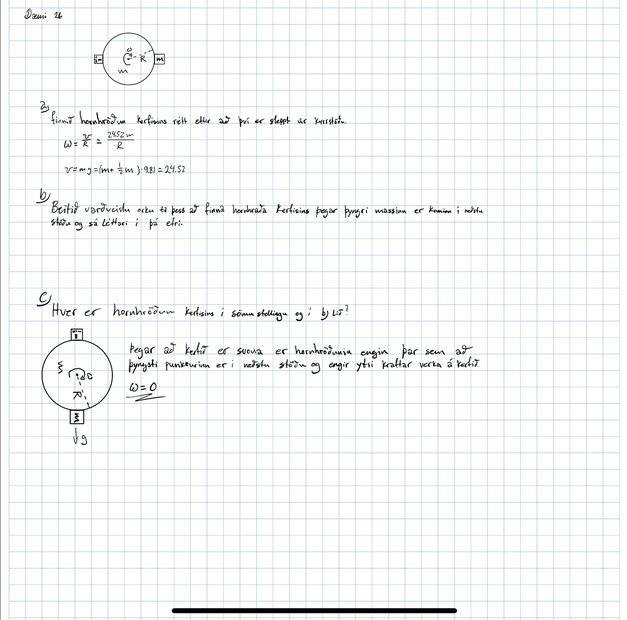 Dæmi 26
½m
R
m
m
a)
finnið hornhröðun kerfisins rétt eftir að því er sleppt úr kyrrstöðu.
ω = v/R = 24.52 m/R
v = mg = (m + ½m) · 9.81 = 24.52
b)
Beitið varðveislu orku til þess að finna hornhraða kerfisins þegar þyngri massinn er kominn í neðstu
stöðu og sá léttari í þá efri.
c)
Hver er hornhröðun kerfisins í sömu stellingu og í b) lið?
Þegar að kerfið er svona er hornhröðunin engin þar sem að
þyngsti punkturinn er í neðstu stöðu og engir ytri kraftar verka á kerfið.
R
ω = 0
m
g